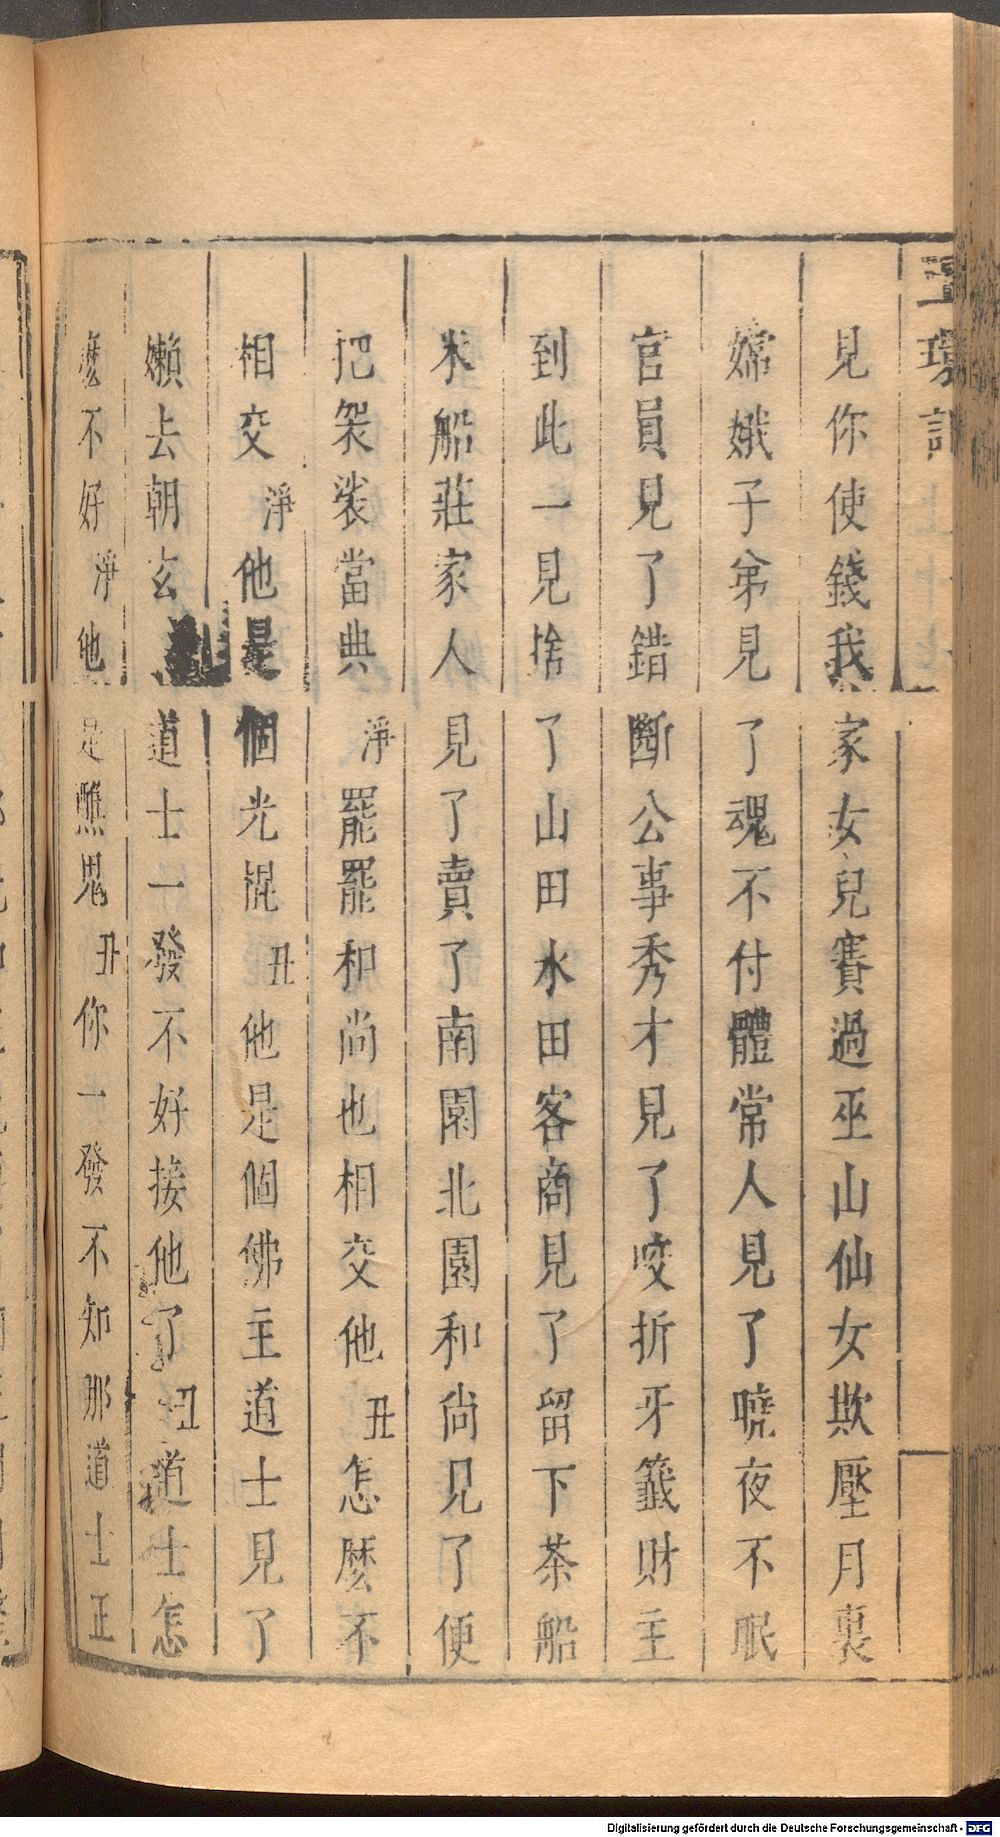 玉環記
見你使錢我家女兒賽過巫山仙女欺壓月裏
嫦娥子弟見了魂不付體常人見了曉夜不眠
官員見了錯斷公事秀才見了咬折牙籤財主
到此一見捨了山田水田客商見了留下茶船
米船莊家人見了賣了南園北園和尚見了便
把袈裟當典淨罷罷和尚也相交他丑怎麼不
相交淨他是個光棍丑他是個佛主道士見了
懶去朝玄道士一發不好接他了丑道士怎
麼不好淨他是醮鬼丑你一發不知那道士正
Digitalisierung gefördert durch die Deutsche Forschungsgemeinschaft - DFG